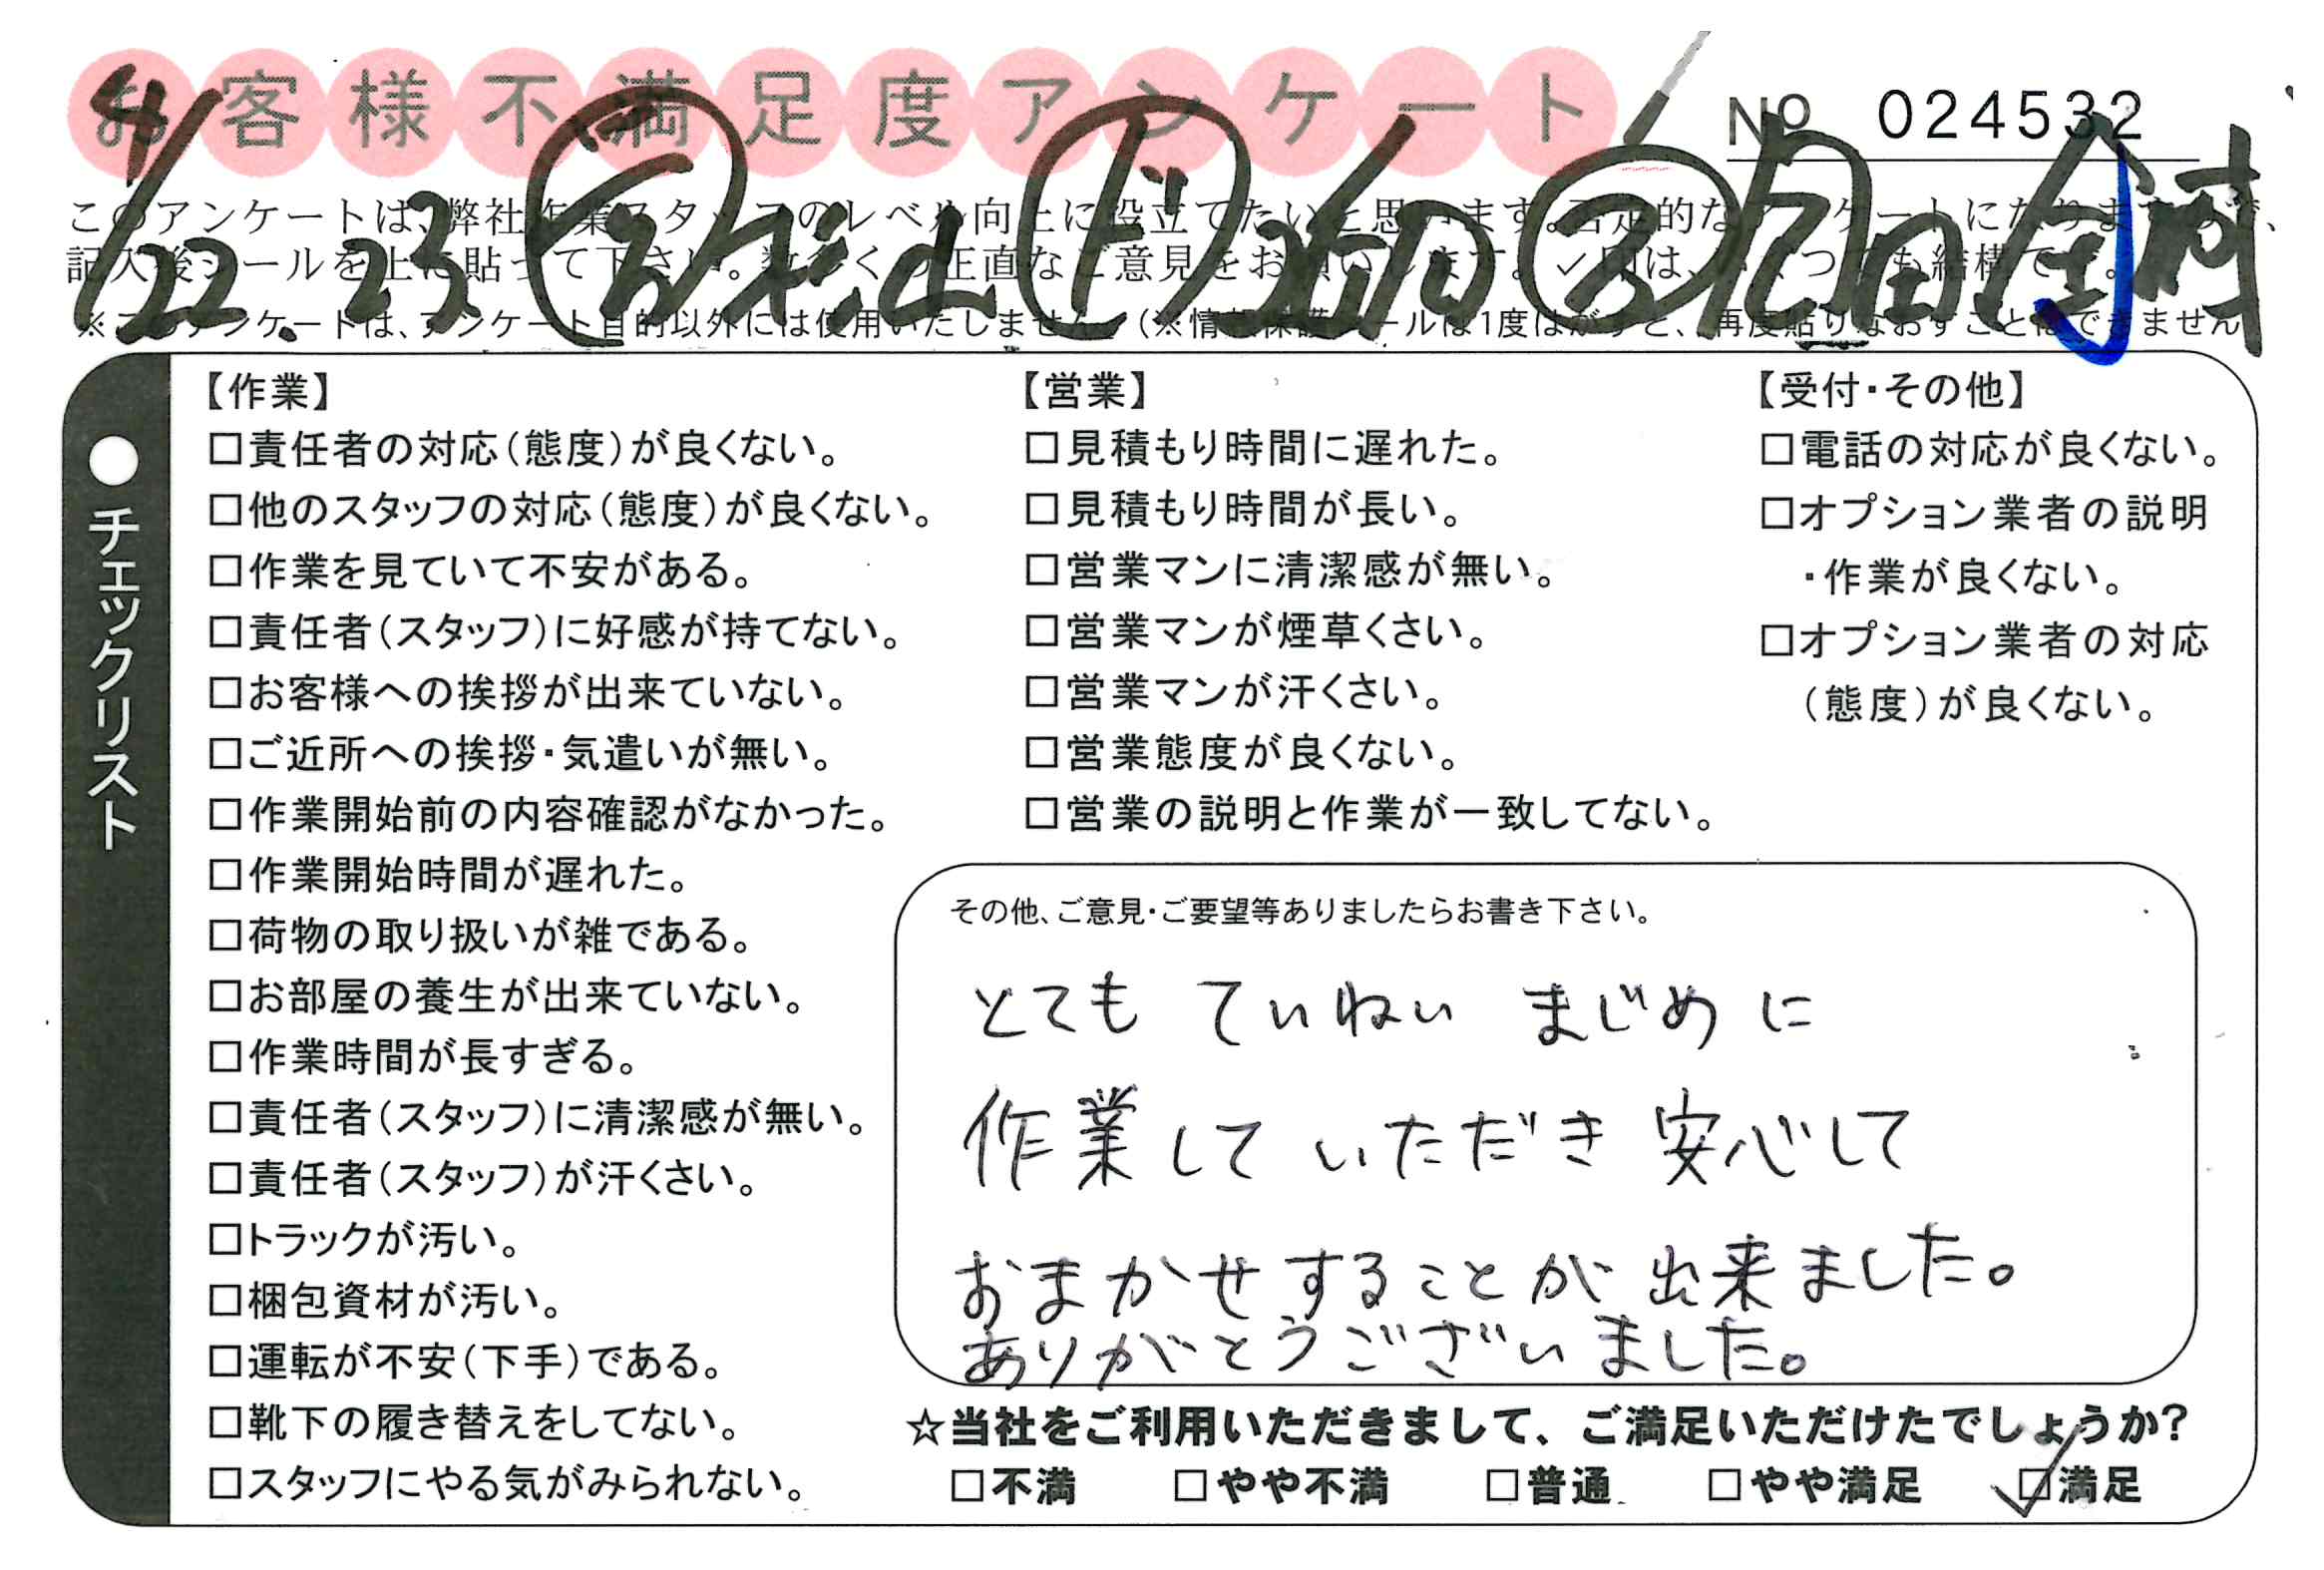 お客様不満足度アンケート
No 024532
4/22.23
このアンケートは、弊社作業スタッフのレベル向上に役立てたいと思います。否定的なアンケートになりますので、
記入後シールを上に貼って下さい。数多くの正直なご意見をお願いします。✓印は、いくつでも結構です。
※このアンケートは、アンケート目的以外には使用いたしません。(※情報保護シールは1度はがすと、再度貼りなおすことはできません
●チェックリスト
【作業】
□責任者の対応(態度)が良くない。
□他のスタッフの対応(態度)が良くない。
□作業を見ていて不安がある。
□責任者(スタッフ)に好感が持てない。
□お客様への挨拶が出来ていない。
□ご近所への挨拶・気遣いが無い。
□作業開始前の内容確認がなかった。
□作業開始時間が遅れた。
□荷物の取り扱いが雑である。
□お部屋の養生が出来ていない。
□作業時間が長すぎる。
□責任者(スタッフ)に清潔感が無い。
□責任者(スタッフ)が汗くさい。
□トラックが汚い。
□梱包資材が汚い。
□運転が不安(下手)である。
□靴下の履き替えをしてない。
□スタッフにやる気がみられない。
【営業】
□見積もり時間に遅れた。
□見積もり時間が長い。
□営業マンに清潔感が無い。
□営業マンが煙草くさい。
□営業マンが汗くさい。
□営業態度が良くない。
□営業の説明と作業が一致してない。
【受付・その他】
□電話の対応が良くない。
□オプション業者の説明
・作業が良くない。
□オプション業者の対応
(態度)が良くない。
その他、ご意見・ご要望等ありましたらお書き下さい。
とても ていねい まじめ に
作業して いただき 安心して
おまかせすることが 出来ました。
ありがとうございました。
☆当社をご利用いただきまして、ご満足いただけたでしょうか?
□不満 □やや不満 □普通 □やや満足 ☑満足